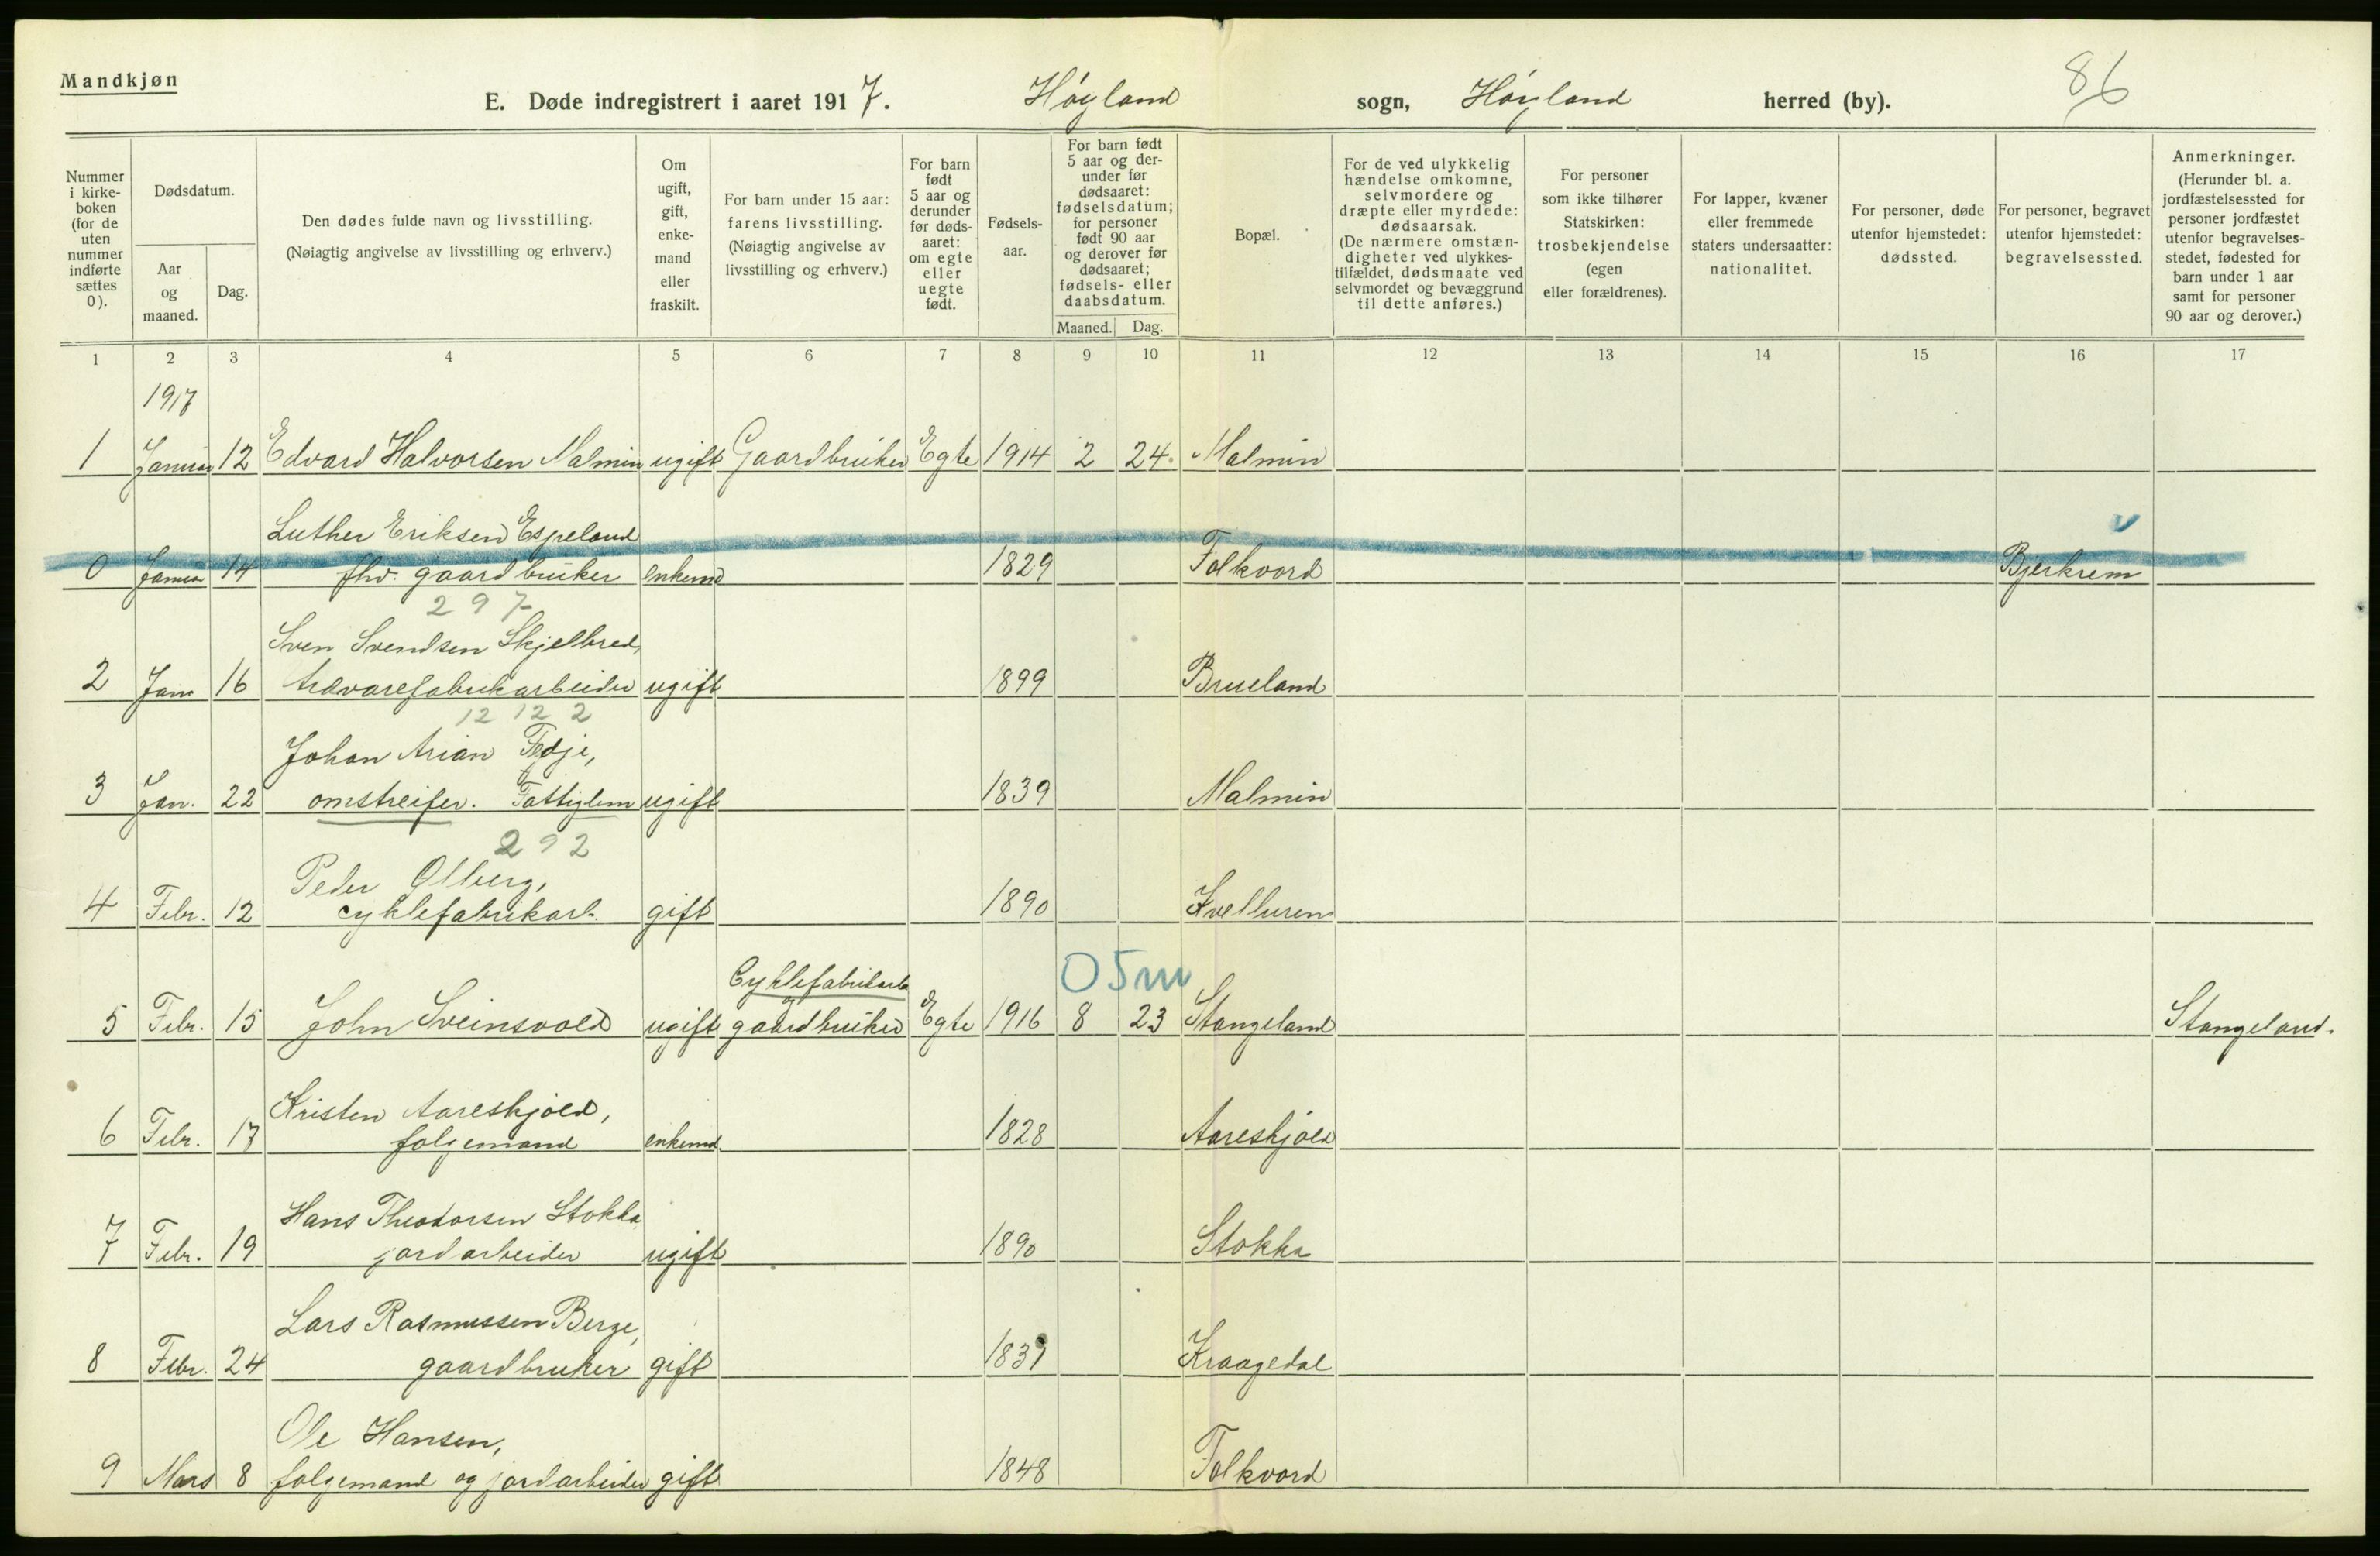 Mandkjøn
E. Døde indregistrert i aaret 1917. Høyland sogn, Høyland herred (by).
86
Nummer i kirke-boken (for de uten nummer indførte sættes 0).
Dødsdatum.
Aar og maaned.
Dag.
Den dødes fulde navn og livsstilling.
(Nøiagtig angivelse av livsstilling og erhverv.)
Om ugift, gift, enke-mand eller fraskilt.
For barn under 15 aar: farens livsstilling. (Nøiagtig angivelse av livsstilling og erhverv.)
For barn født 5 aar og derunder før døds-aaret: om egte eller uegte født.
Fødsels-aar.
For barn født 5 aar og der-under før dødsaaret: fødselsdatum; for personer født 90 aar og derover før dødsaaret; fødsels- eller daabsdatum.
Maaned. Dag.
Bopæl.
For de ved ulykkelig hændelse omkomne, selvmordere og dræpte eller myrdede: dødsaarsak. (De nærmere omstæn-digheter ved ulykkes-tilfældet, dødsmaate ved selvmordet og bevæggrund til dette anføres.)
For personer som ikke tilhører Statskirken: trosbekjendelse (egen eller forældrenes).
For lapper, kvæner eller fremmede staters undersaatter: nationalitet.
For personer, døde utenfor hjemstedet: dødssted.
For personer, begravet utenfor hjemstedet: begravelsessted.
Anmerkninger. (Herunder bl. a. jordfæstelsessted for personer jordfæstet utenfor begravelses-stedet, fødested for barn under 1 aar samt for personer 90 aar og derover.)
1 2 3 4 5 6 7 8 9 10 11 12 13 14 15 16 17
1917
1 Januar 12 Edvard Halvorsen Malmin ugift Gaardbruker Egte 1914 2 24. Malmin
Luther Eriksen Espeland
0 Januar 14 fhv. gaardbruker enkemd 1829 Folkvord Bjerkrem
2 9 7
Sven Svendsen Skjelbred,
2 Jan 16 trævarefabrikarbeider ugift 1899 Brueland
12 12 2
Johan Arian Fedje,
3 Jan. 22 omstreifer. Fattiglem ugift 1839 Malmin
2 9 2
Peder Olberg,
4 Febr. 12 cyklefabrikarb. gift 1890 Kvelluren
Cyklefabrikarb 05m
5 Febr. 15 John Sveinsvold ugift gaardbruker Egte 1916 8 23 Stangeland Stangeland.
Kristen Aareskjold,
6 Febr. 17 folgemand enkemd 1828 Aareskjold
Hans Theodorsen Stokka
7 Febr. 19 jordarbeider ugift 1890 Stokka
Lars Rasmussen Berge,
8 Febr. 24 gaardbruker gift 1839 Kraagedal
Ole Hansen,
9 Mars 8 folgemand og jordarbeider gift 1848 Folkvord